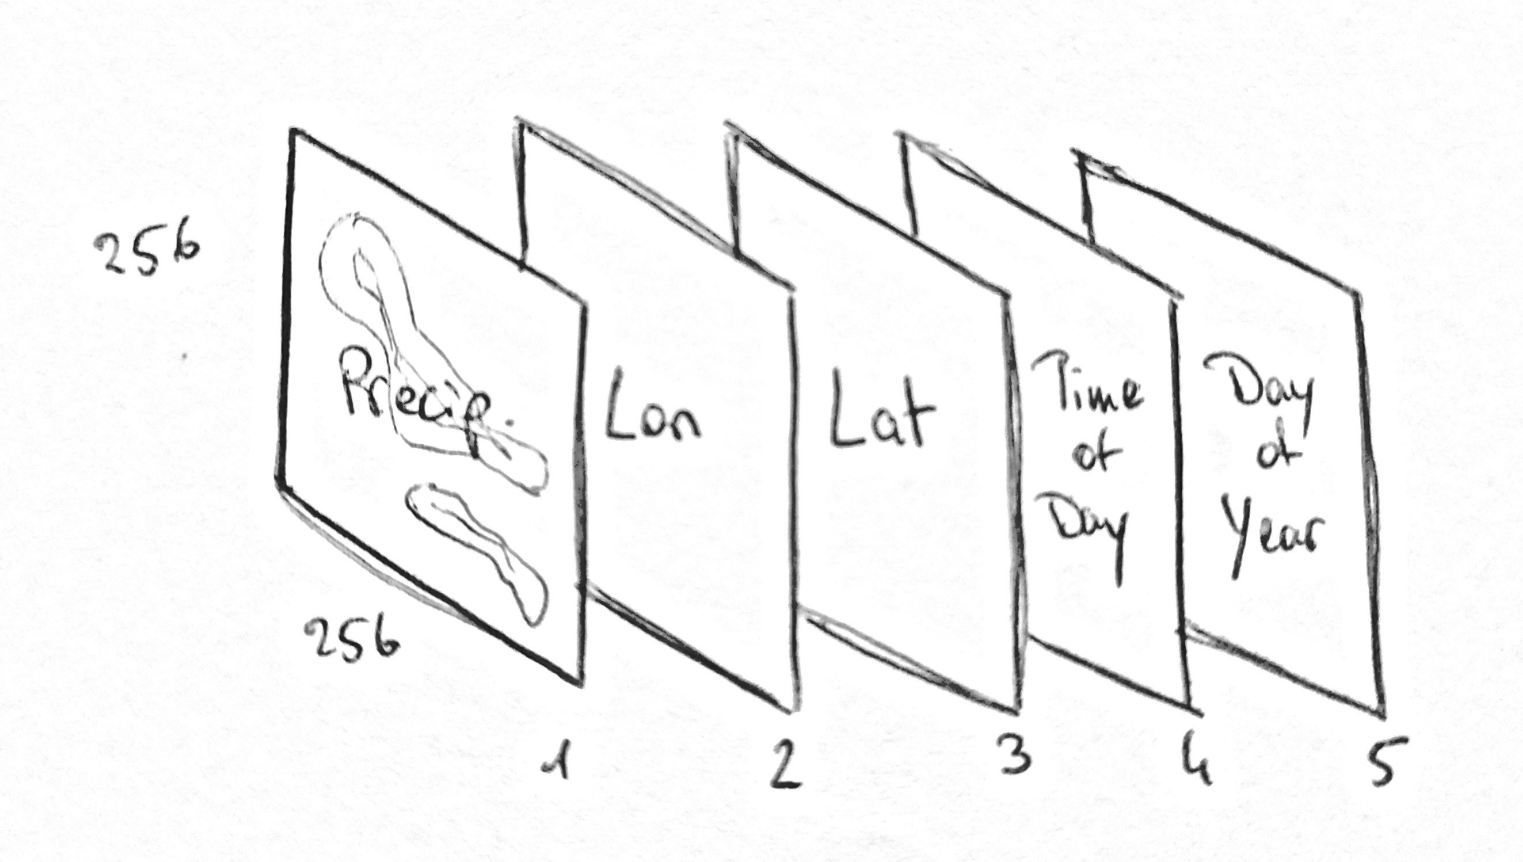 256
Precip.
Lon
Lat
Time
of
Day
Day
of
Year
256
1
2
3
4
5